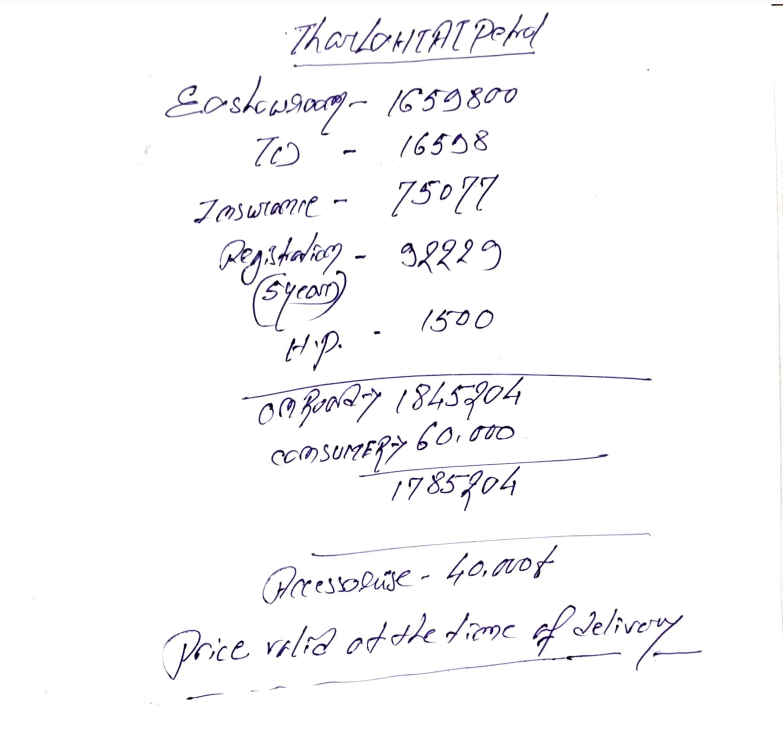 Thar Lx HT AT Petrol
Exshowroom - 1659800
TCS - 16598
Insurance - 75077
Registration - 92229
(5 years)
H.P. - 1500
ON ROAD → 1845204
CONSUMER → 60,000
1785204
Accessories - 40,000
Price valid at the time of delivery